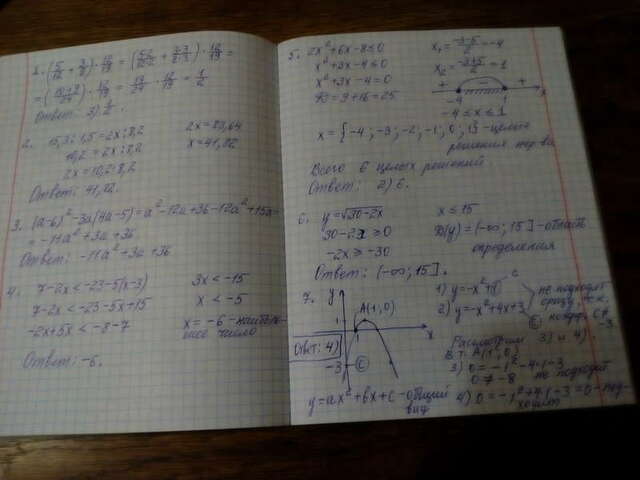 1. (5/12 + 3/8) · 12/19 = (5·2/12·2 + 3·3/8·3) · 12/19 =
= (10+9/24) · 12/19 = 19/24 · 12/19 = 1/2
Ответ: 3) 1/2.
2. 15,3 : 1,5 = 2x : 8,2
10,2 = 2x : 8,2
2x = 10,2 · 8,2
2x = 83,64
x = 41,82
Ответ: 41,82.
3. (a-6)² - 3a(4a-5) = a² - 12a + 36 - 12a² + 15a =
= -11a² + 3a + 36
Ответ: -11a² + 3a + 36
4. 7-2x < -23-5(x-3)
7-2x < -23-5x+15
-2x+5x < -8-7
3x < -15
x < -5
x = -6 - наиболь-
шее число
Ответ: -6.
5. 2x² + 6x - 8 ≤ 0
x² + 3x - 4 ≤ 0
x² + 3x - 4 = 0
= 9 + 16 = 25
x₁ = -3-5/2 = -4
x₂ = -3+5/2 = 1
+ - +
-4 1 x
-4 ≤ x ≤ 1
x = {-4; -3; -2; -1; 0; 1} - целые
решения
Всего 6 целых решений
Ответ: 2) 6.
6. y = √30-2x
30-2x ≥ 0
-2x ≥ -30
x ≤ 15
D(y) = (-∞; 15] - область
определения
Ответ: (-∞; 15].
7. y
A(1; 0)
1
1 x
Ответ: 4)
-3 C
y = ax² + bx + c - общий
вид
2) y = -x² + 4x + 3
не подходят
сразу, т.к.
-3
Рассмотрим 3) и 4)
в т. A(1; 0)
3) 0 = -1² - 4·1 - 3
0 ≠ -8 не подходит
4) 0 = -1² + 4·1 - 3 = 0 - под-
ходит